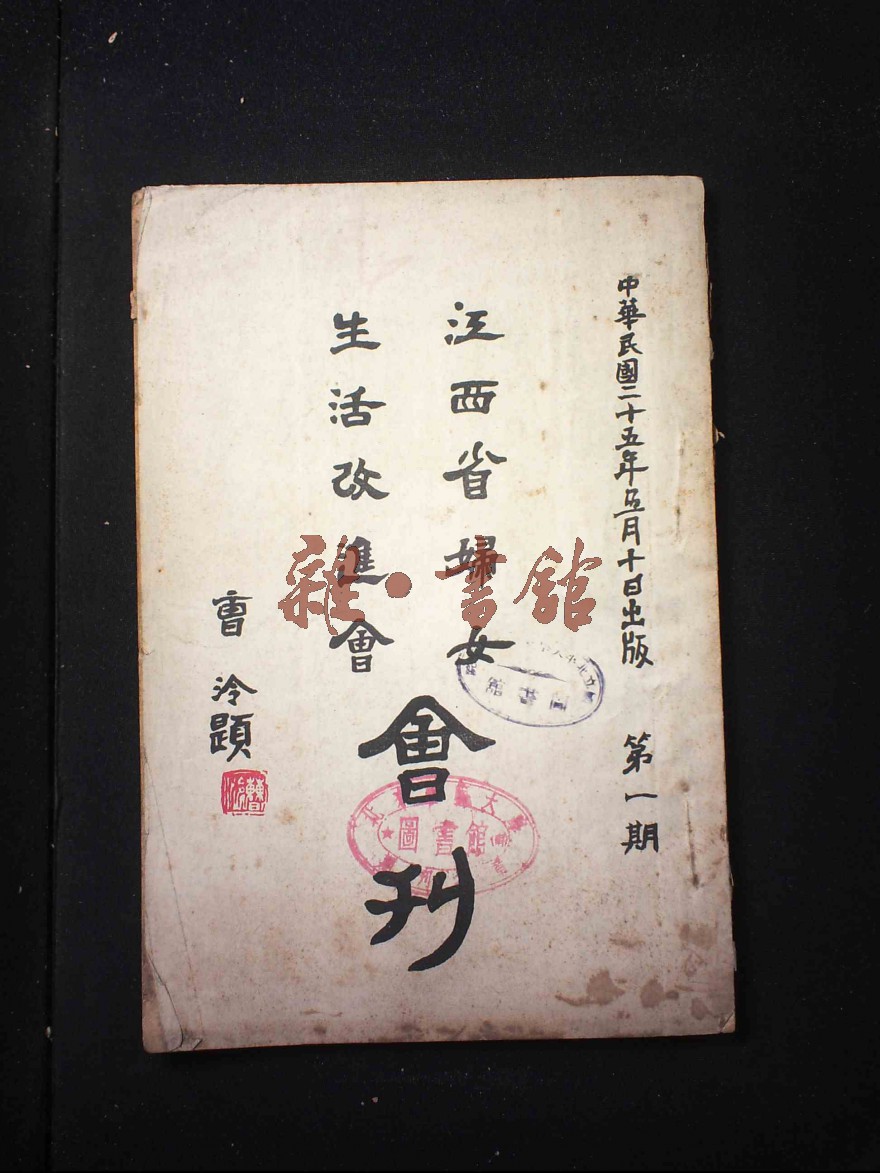 中華民國二十五年五月十日出版 第一期
江西省婦女
生活改進會
會刊
曹泠題
雜·書館
圖書館
圖書館